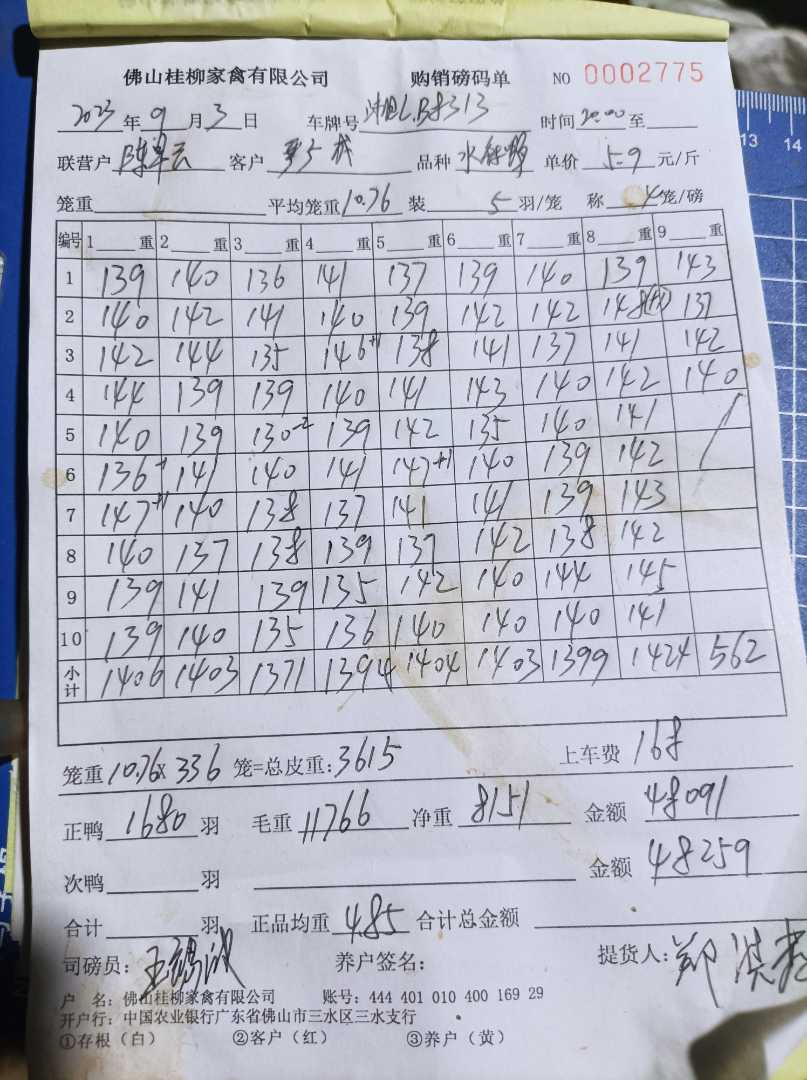 佛山桂柳家禽有限公司 购销磅码单 NO 0002775
2023 年 9 月 3 日 车牌号 L.B8313 时间 20:00 至
联营户 客户 品种 水 单价 5.9 元/斤
笼重 平均笼重 10.76 装 5 羽/笼 称 4 笼/磅
编号 1 重 2 重 3 重 4 重 5 重 6 重 7 重 8 重 9 重
1 139 140 136 141 137 139 140 139 143
2 140 142 141 140 139 142 142 148 137
3 142 144 135 146+1 138 141 137 141 142
4 144 139 139 140 141 143 140 142 140
5 140 139 130-2 139 142 135 140 141 /
6 136 141 140 141 147+1 140 139 142
7 147+1 140 138 137 141 141 139 143
8 140 137 138 139 137 142 138 142
9 139 141 139 135 142 140 144 145
10 139 140 135 136 140 140 140 141
小计 1406 1403 1371 1394 1404 1403 1399 1424 562
笼重 10.76 x 336 笼=总皮重: 3615 上车费 168
正鸭 1680 羽 毛重 11766 净重 8151 金额 48091
次鸭 羽 金额 48259
合计 羽 正品均重 4.85 合计总金额
司磅员: 王 养户签名: 提货人: 郑
户 名: 佛山桂柳家禽有限公司 账号: 444 401 010 400 169 29
开户行: 中国农业银行广东省佛山市三水区三水支行
①存根（白） ②客户（红） ③养户（黄）